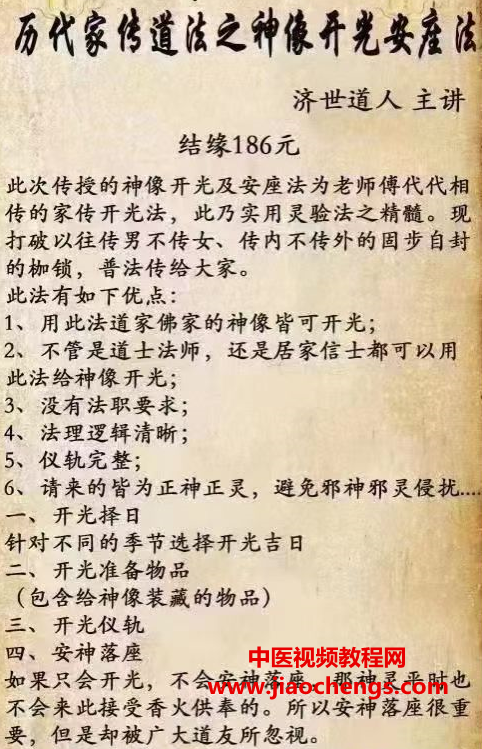 历代家传道法之神像开光安座法
济世道人 主讲
结缘186元
此次传授的神像开光及安座法为老师傅代代相
传的家传开光法，此乃实用灵验法之精髓。现
打破以往传男不传女、传内不传外的固步自封
的枷锁，普法传给大家。
此法有如下优点：
1、用此法道家佛家的神像皆可开光；
2、不管是道士法师，还是居家信士都可以用
此法给神像开光；
3、没有法职要求；
4、法理逻辑清晰；
5、仪轨完整；
6、请来的皆为正神正灵，避免邪神邪灵侵扰....
一、开光择日
针对不同的季节选择开光吉日
二、开光准备物品
（包含给神像装藏的物品）
三、开光仪轨
四、安神落座
中医视频教程网
如果只会开光，不会安神落座，那神灵平时也
www.jiaochengs.com
不会来此接受香火供奉的。所以安神落座很重
要，但是却被广大道友所忽视。